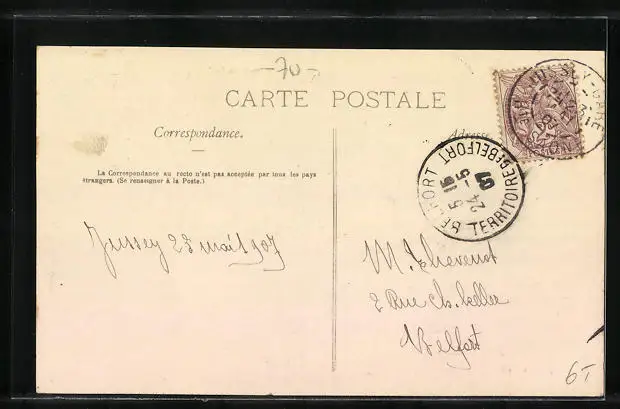 -70-
CARTE POSTALE
Correspondance.
Adresse
La Correspondance au recto n'est pas acceptée par tous les pays
étrangers. (Se renseigner à la Poste.)
BELFORT TERRITOIRE DE BELFORT
5 15
24 - 5
07
Jussey 23 mai 1907
M. Thevenot
2 Rue Ch. Keller
Belfort
6T